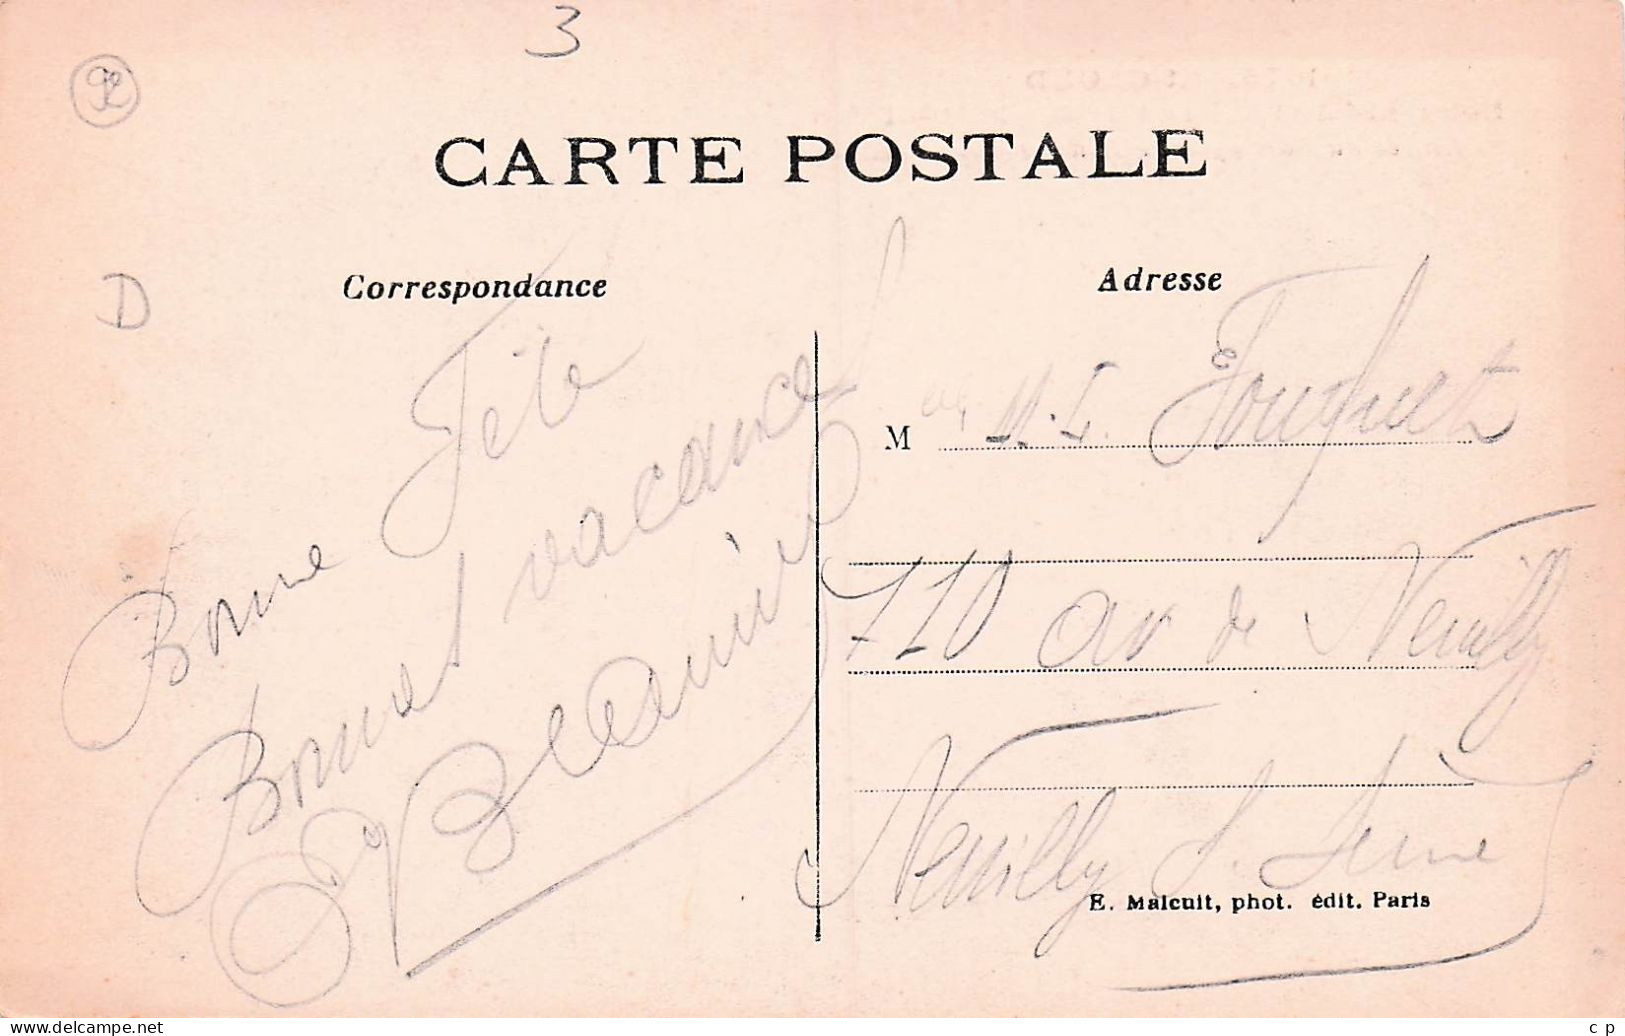 3
92
CARTE POSTALE
D
Correspondance
Adresse
Bonne Fête
Bonnes vacances
M M. L. Fouquet
110 av de Neuilly
Neuilly S. Seine
E. Malcuit, phot. édit. Paris
www.delcampe.net
c p